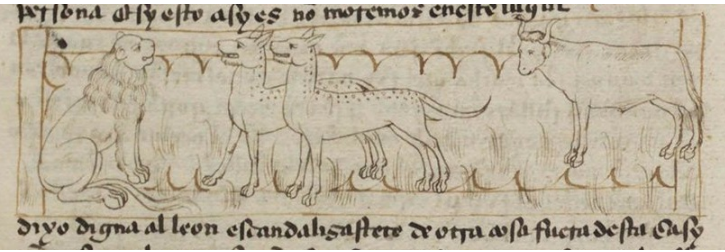 persona Et sy esto asy es nō moremos en este lugar
dixo digna al leon escandaligastete de otra cosa fuera desta Casy